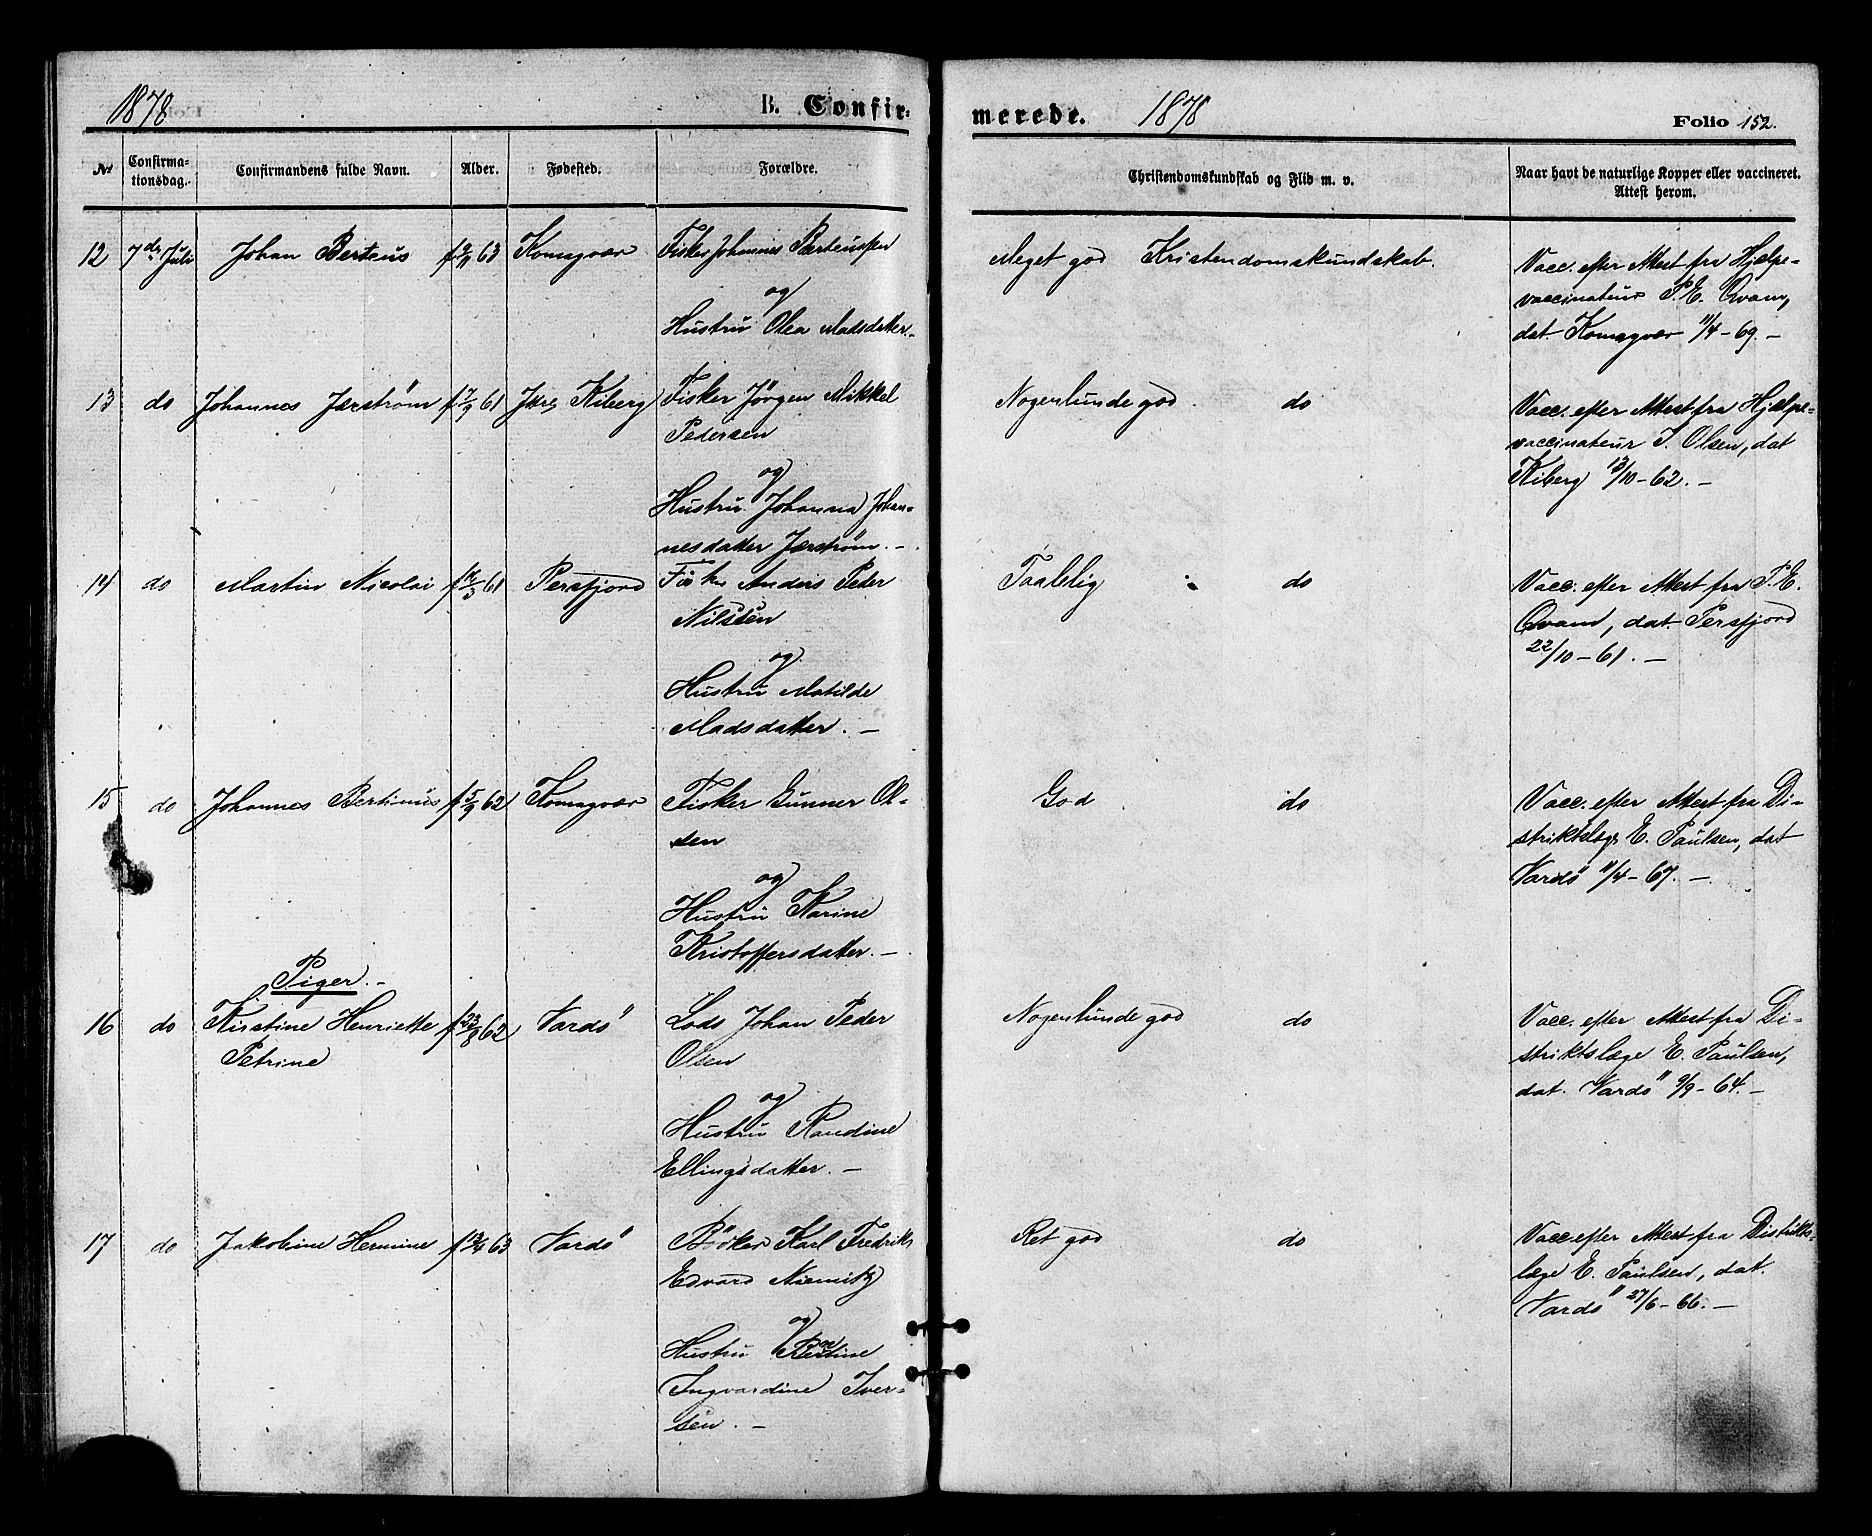 1878 B. Confir-
merede. 1878 Folio 152.
No Confirmationsdag. Confirmandens fulde Navn. Alder. Fødested. Forældre. Christendomskundskab og Flid m. v. Naar havt de naturlige Kopper eller vaccineret. Attest herom.
12 7de Juli Johan Berteus 63 Komagvær Fisker Johannes Berteussen Meget god Kristendomskundskab. Vacc. efter Attest fra Hjælpe-
og vaccinateur P. E. Qvam,
Hustru Olea Madsdatter. dat. Komagvær 11/4-69.-
13 do Johannes Jærstrøm f 17/9 61 Kiberg Fisker Jörgen Mikkel Nogenlunde god do Vacc. efter Attest fra Hjælpe-
Pedersen vaccinateur Olsen, dat
og Kiberg 13/10-62.-
Hustru Johanna Johan-
nesdatter Jærström.-
14 do Martin Nicolai 61 Persfjord Fisker Anders Peder Taalelig do Vacc. efter Attest fra P. E.
Nilssen Qvam, dat. Persfjord
og 22/10-61.-
Hustru Matilde
Madsdatter.-
15 do Johannes Bertinus f 5/9 62 Komagvær Fisker Gunner Ol- God do Vacc. efter Attest fra Di-
sen striktslæge E. Paulsen, dat
og Vardö 11/4-67.-
Hustru Karine
Kristoffersdatter.-
Piger.-
16 do Kirstine Henriette f 23/8 62 Vardö Lods Johan Peder Nogenlunde god do Vacc. efter Attest fra Di-
Petrine Olsen striktslæge E. Paulsen,
og dat. Vardö 9/9-64.-
Hustru Randine
Ellingsdatter.-
17 do Jakobine Hermine 63 Vardö Böker Karl Fredrik Ret god do Vacc. efter Attest fra Distrikts-
Edvard Niemitz læge E. Paulsen, dat.
og Vardö 27/6-66.-
Hustru
Ingvardine Iver-
sen.-